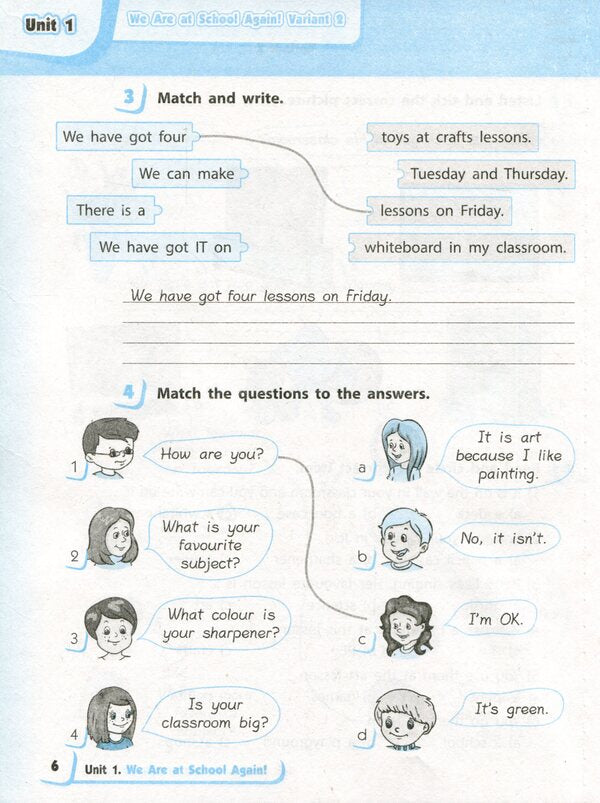 Unit 1
We Are at School Again! Variant 2
3 Match and write.
We have got four
toys at crafts lessons.
We can make
Tuesday and Thursday.
There is a
lessons on Friday.
We have got IT on
whiteboard in my classroom.
We have got four lessons on Friday.
4 Match the questions to the answers.
1 How are you?
a It is art
because I like
painting.
2 What is your
favourite
subject?
b No, it isn't.
3 What colour is
your sharpener?
c I'm OK.
4 Is your
classroom big?
d It's green.
6 Unit 1. We Are at School Again!